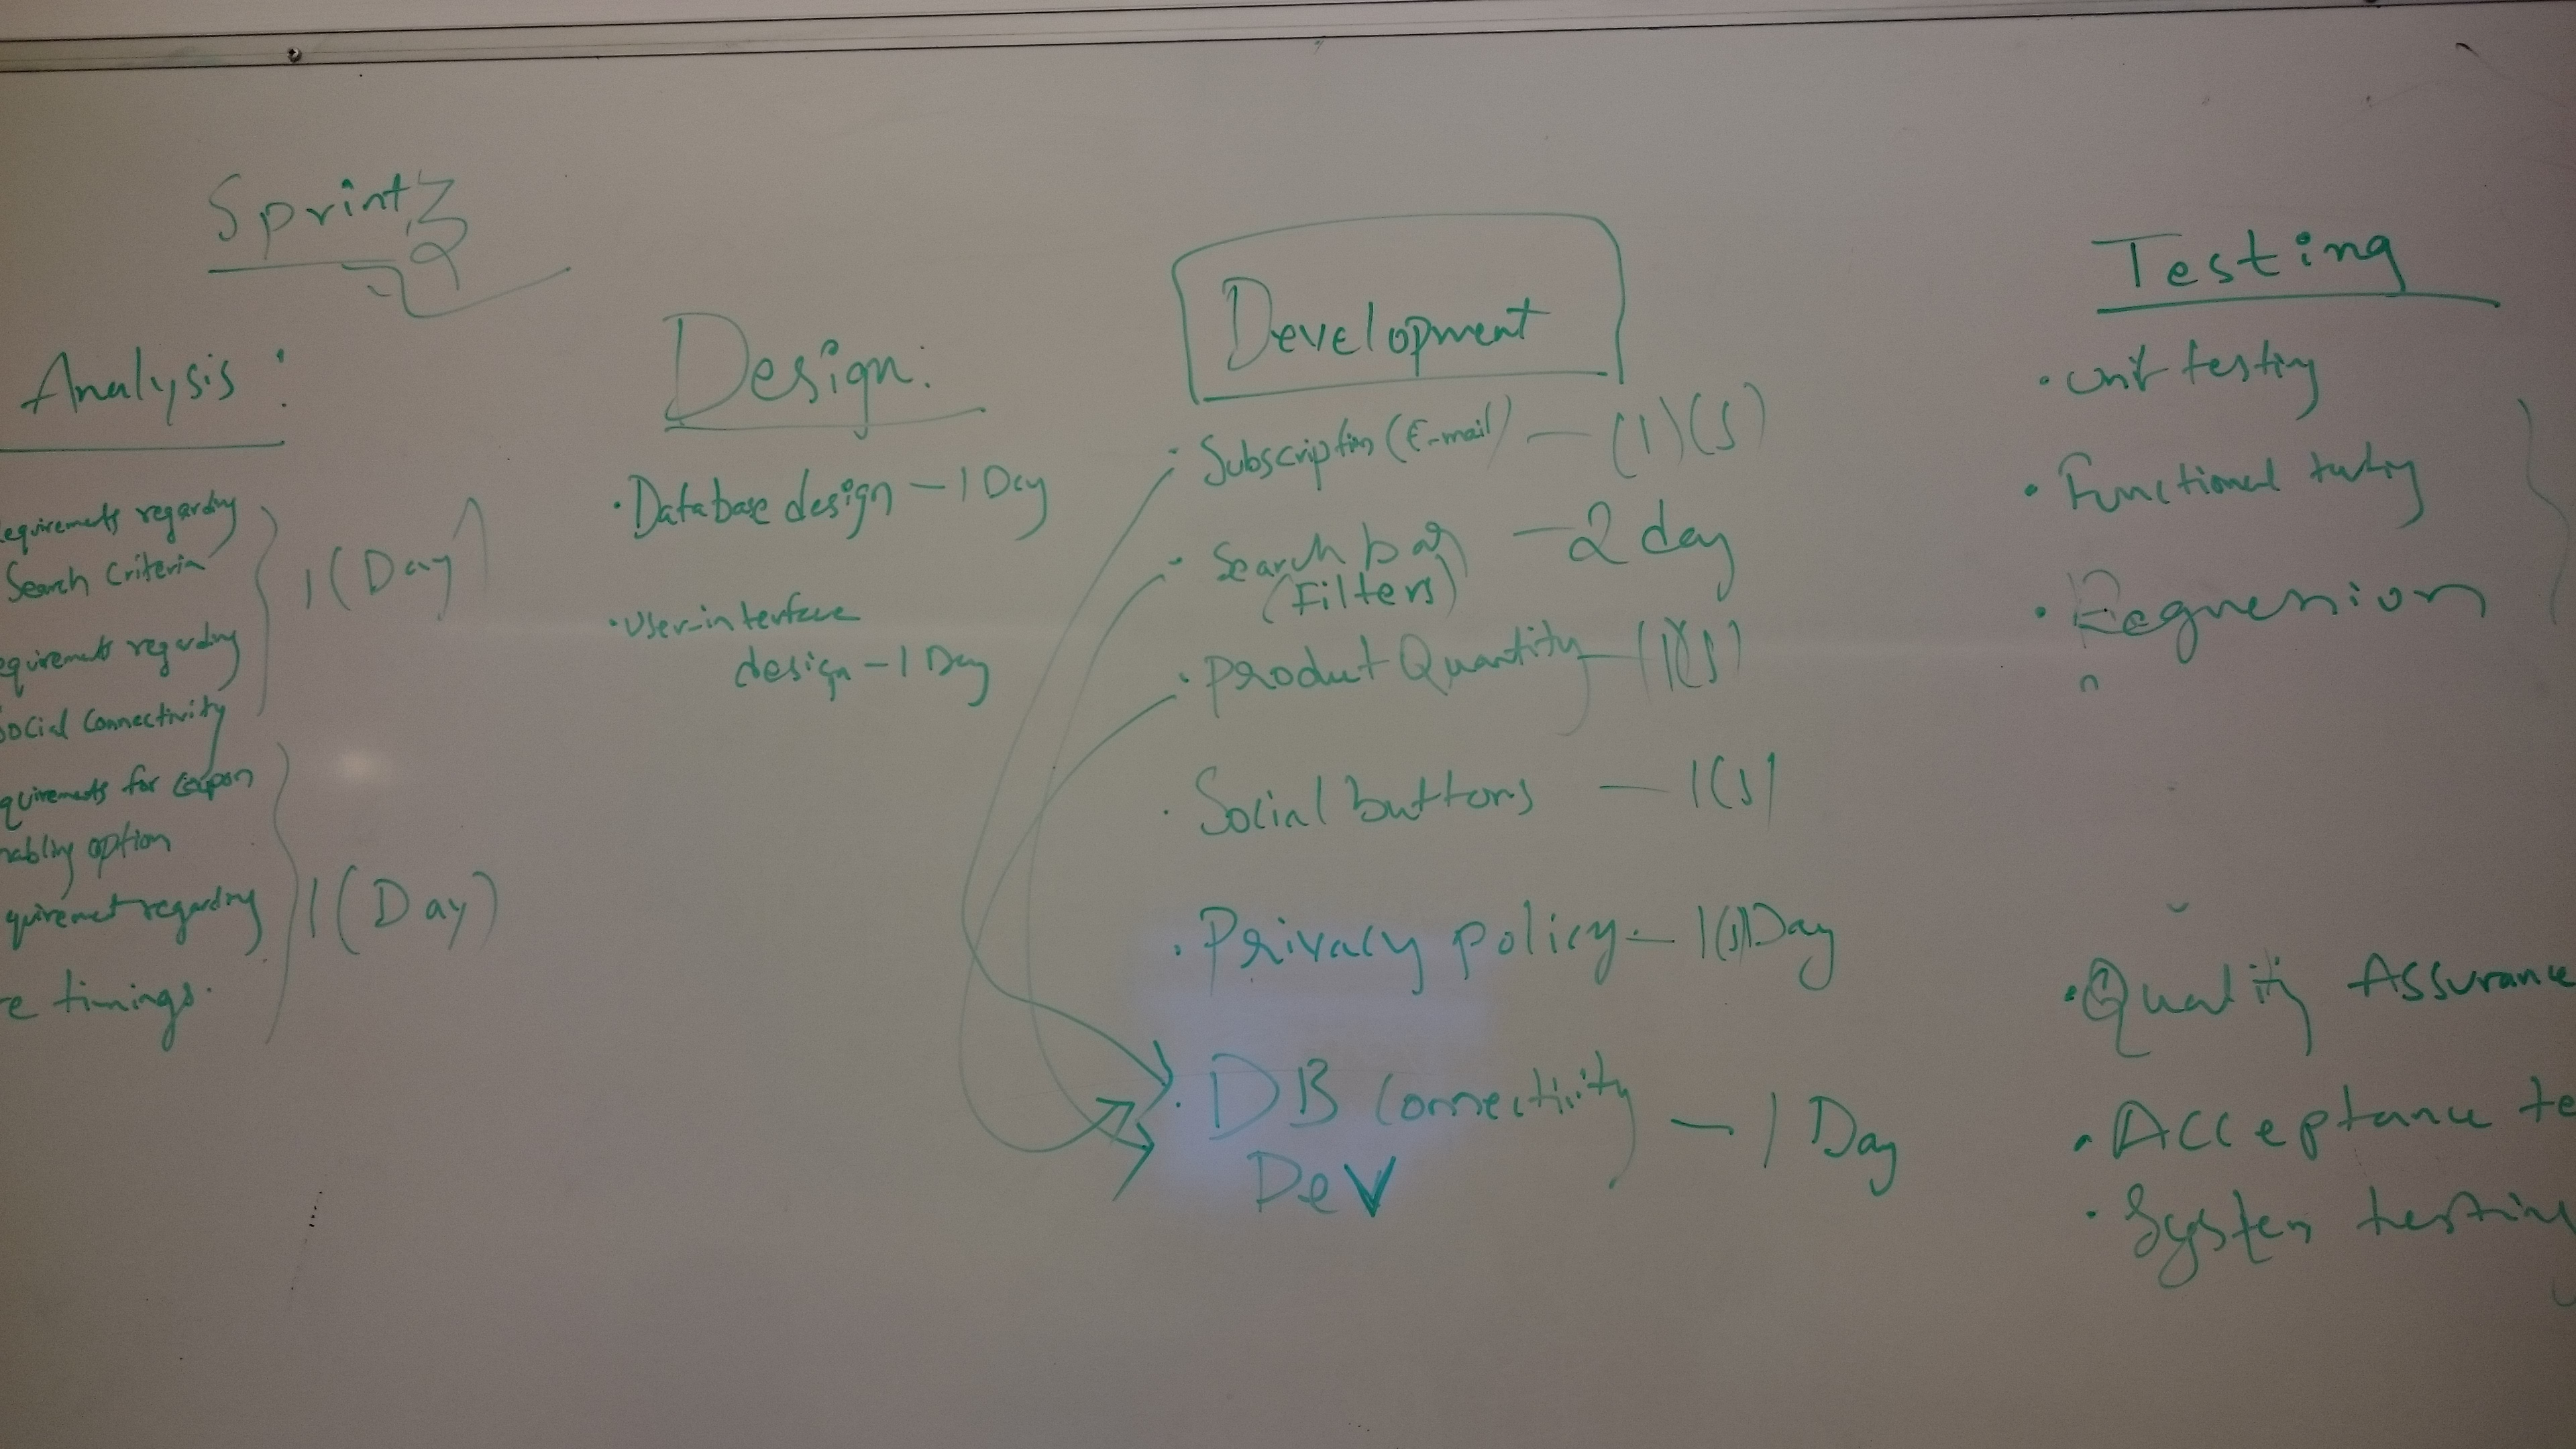 Sprint 3
Analysis :
equirements regarding
Search Criteria
equirements regarding
Social Connectivity
1 (Day)
quirements for coupon
nabling option
quiremet regarding
e timings.
1 (Day)
Design:
• Database design - 1 Day
• User-interface
design - 1 Day
Development
• Subscription (E-mail) - (1)(s)
• Search bar - 2 day
(Filters)
• Product Quantity - (1)(s)
• Social buttons - 1(s)
• Privacy policy - 1(s)Day
• DB Connectivity - 1 Day
Dev
Testing
• Unit testing
• Functional testing
• Regression
• Quality Assurance
• Acceptance te
• System testing